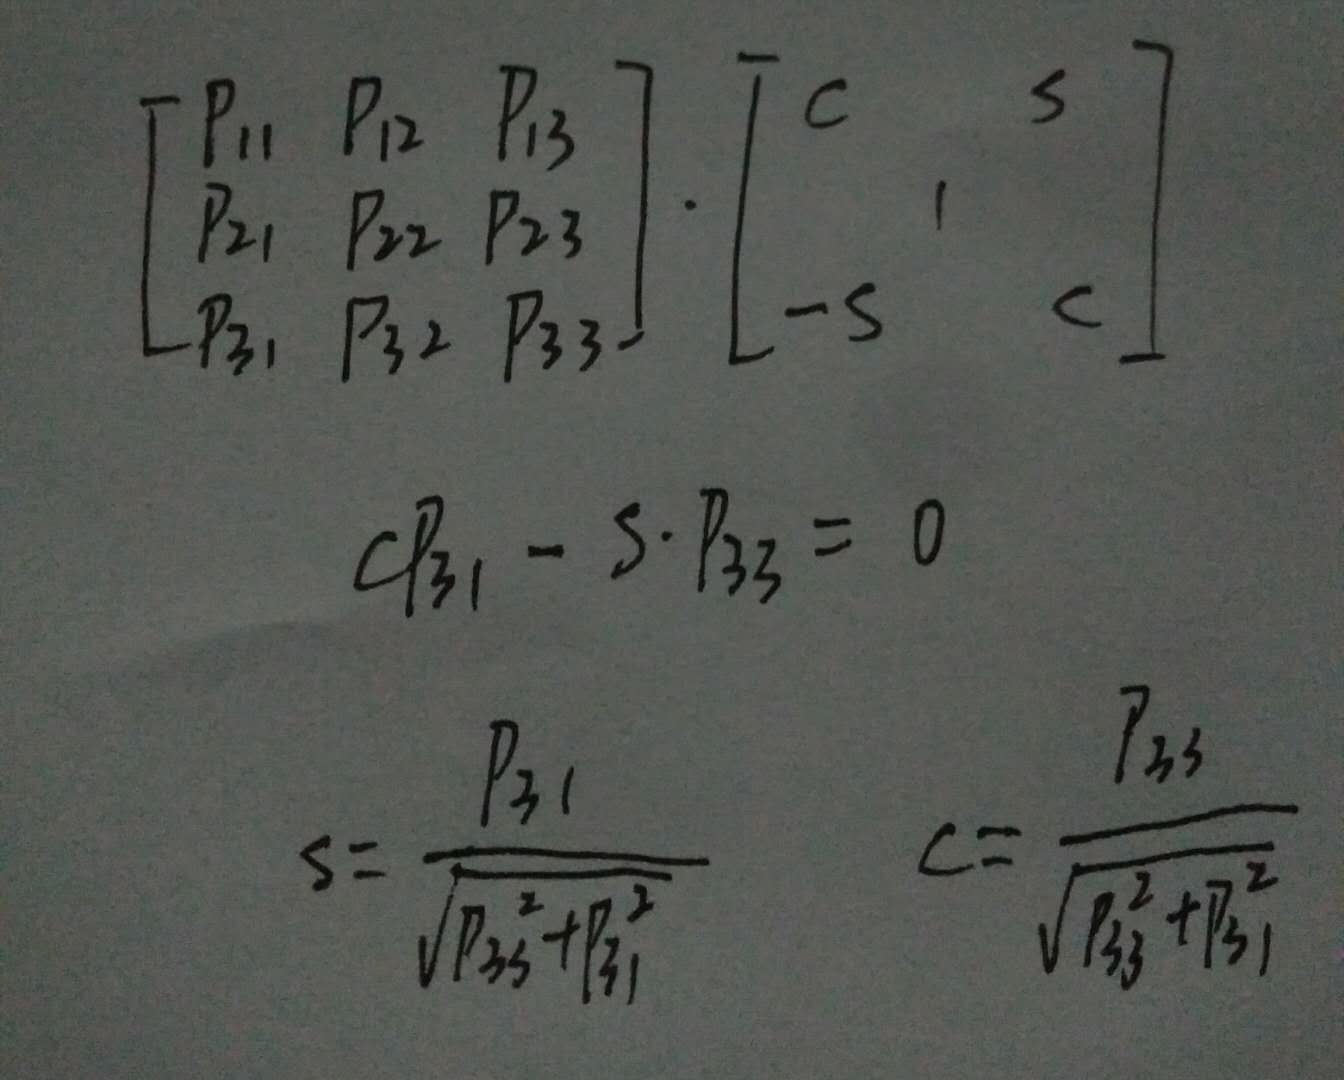 P11 P12 P13 · c s
P21 P22 P23 1
P31 P32 P33 -s c
cP31 - s·P33 = 0
s = P31 / √(P33² + P31²) c = P33 / √(P33² + P31²)